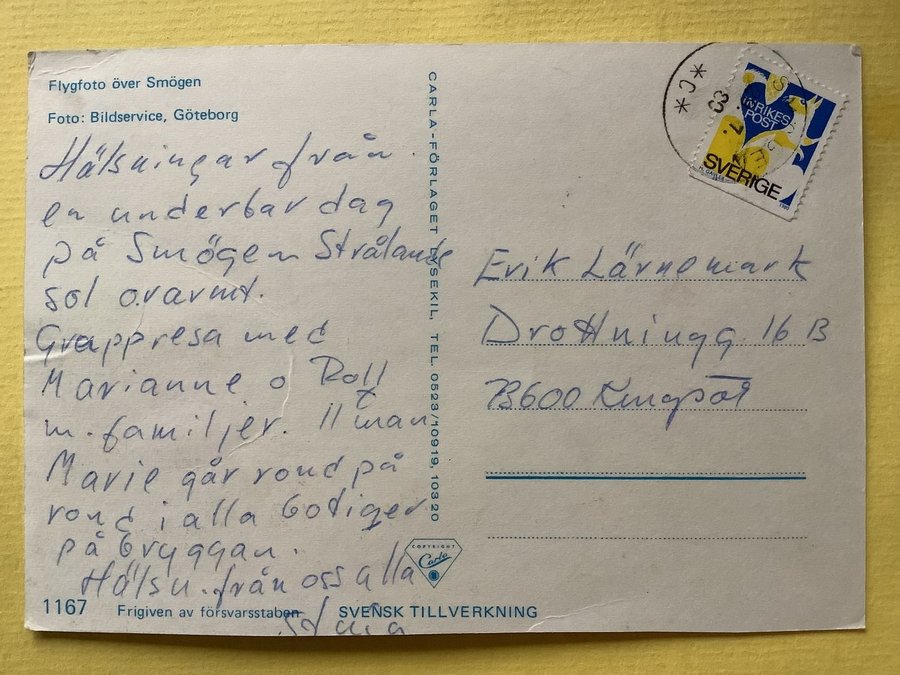 Flygfoto över Smögen
Foto: Bildservice, Göteborg
Hälsningar från
en underbar dag
på Smögen Strålande
sol o.varmt.
Gruppresa med
Marianne o Rolf
m. familjer. 11 man
Marie går rond på
rond i alla botiger
på bryggan.
Hälsn. från oss alla
1167 Frigiven av försvarsstaben SVENSK TILLVERKNING
CARLA-FÖRLAGET LYSEKIL, TEL. 0523/10919, 103 20
COPYRIGHT
Carla
INRIKES
POST
SVERIGE
Erik Lärnemark
Drottningg. 16 B
73600 Kungsör